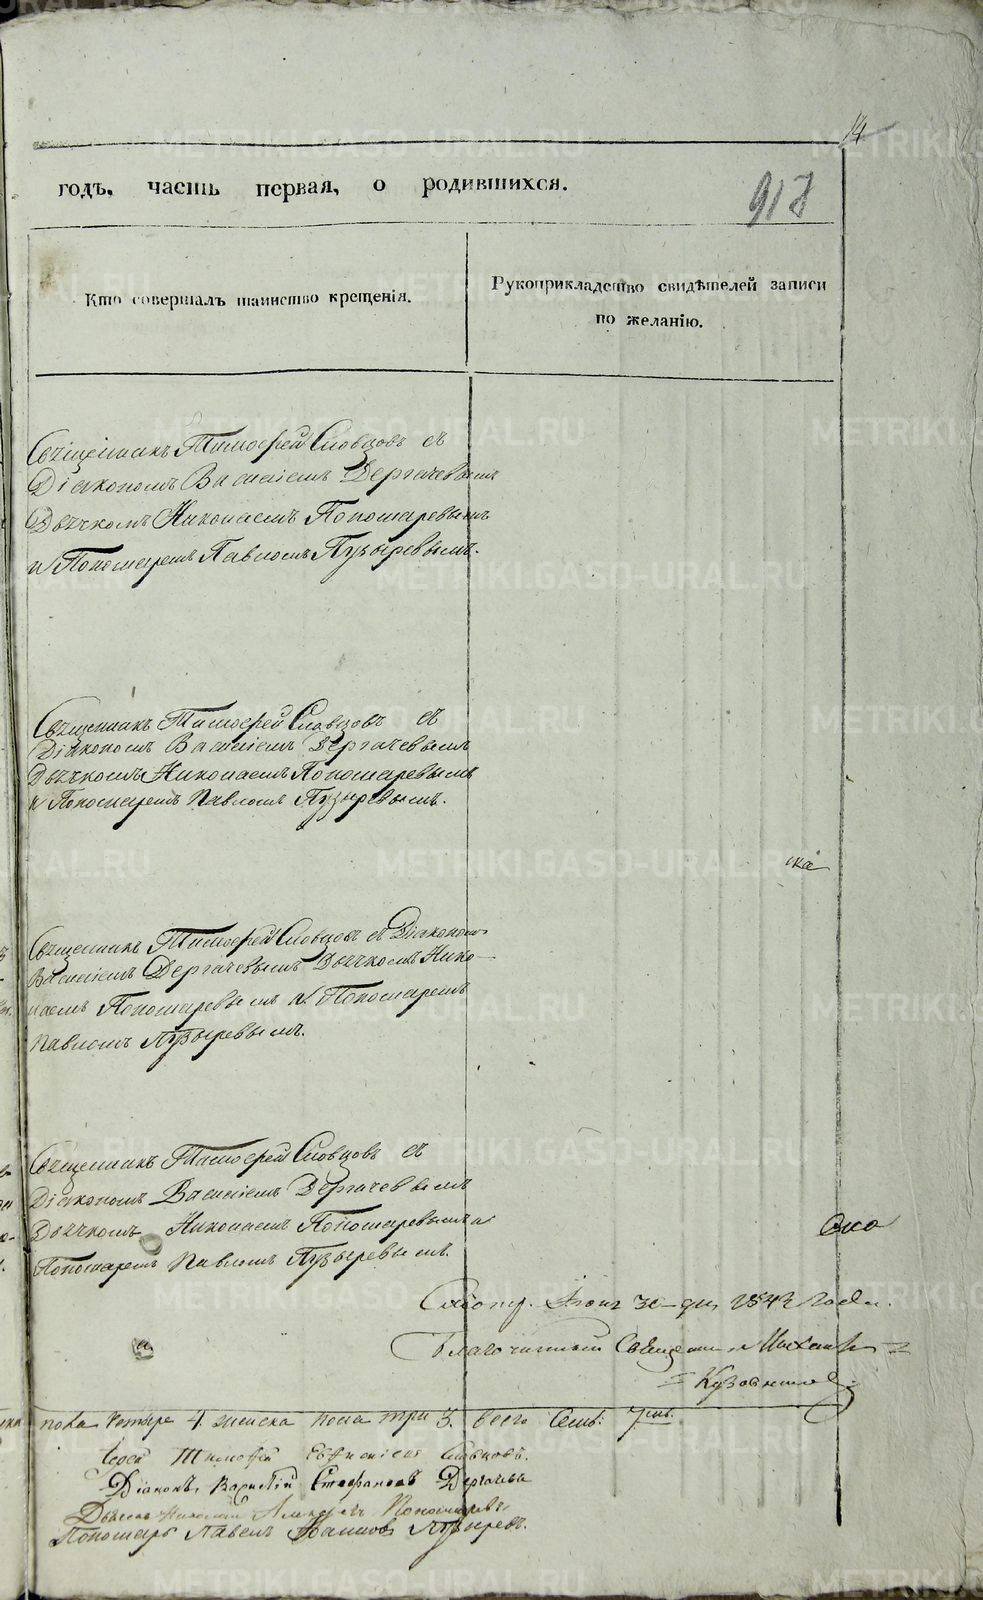 14
годъ, часть первая, о родившихся.
917
Кто совершалъ таинство крещенія.
Рукоприкладство свидѣтелей записи
по желанію.
Священникъ Тимофей Словцовъ съ
Діакономъ Василіемъ Дергачевымъ
Дьячкомъ Николаемъ Пономаревымъ
и Пономаремъ Павломъ Пузыревымъ.
Священникъ Тимофей Словцовъ съ
Діакономъ Василіемъ Дергачевымъ
Дьячкомъ Николаемъ Пономаревымъ
и Пономаремъ Павломъ Пузыревымъ.
ка
Священникъ Тимофей Словцовъ съ Діакономъ
Василіемъ Дергачевымъ Дьячкомъ Нико-
лаемъ Пономаревымъ и Пономаремъ
Павломъ Пузыревымъ.
Священникъ Тимофей Словцовъ съ
Діакономъ Василіемъ Дергачевымъ
Дьячкомъ Николаемъ Пономаревымъ и
Пономаремъ Павломъ Пузыревымъ.
30 дня года.
Благочинный Священникъ
пола четыре 4. женска пола три 3. всего семь 7.
Іерей Тимофей Словцовъ.
Діаконъ Василій Стефановъ Дергачевъ
Дьячекъ Николай Пономаревъ
Пономарь Павелъ Іоанновъ Пузыревъ.
METRIKI.GASO-URAL.RU